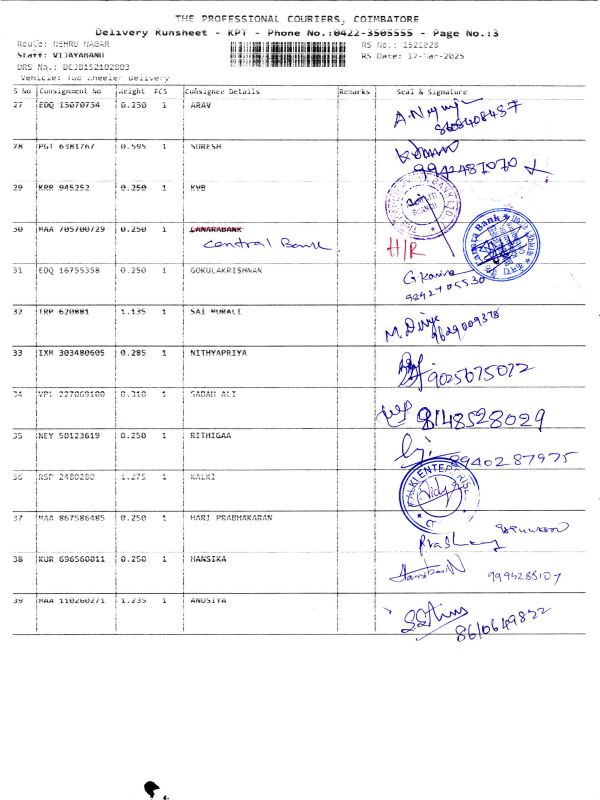 THE PROFESSIONAL COURIERS, COIMBATORE
Delivery Runsheet - KPT - Phone No.:0422-3505555 - Page No.:3
Route: NEHRU NAGAR
RS No.: 1521028
Staff: VIJAYABANU
RS Date: 17-Mar-2025
DRS No.:
Vehicle: Two Wheeler Delivery
S No Consignment No Weight PCS Consignee Details Remarks Seal & Signature
27 EDQ 15070734 0.250 1 ARAV
8608408487
28 PGT 6381767 0.595 1 SURESH
9942481070
29 KRR 945252 0.250 1 KVB
30 MAA 705700729 0.250 1 CANARABANK
Central Bank.
H/R
Canara Bank
31 EDQ 16755358 0.250 1 GOKULAKRISHNAN
9842705530
32 TRP 620881 1.135 1 SAI MURALI
M. Divya
9629009378
33 IXM 303480605 0.285 1 NITHYAPRIYA
9025675072
34 VPL 227069100 0.310 1 SABAH ALI
8148528029
35 NEY 50123619 0.250 1 RITHIGAA
8940287975
36 RSP 2480280 1.275 1 KALKI
KALKI ENTERPRISE
37 MAA 867586485 0.250 1 HARI PRABHAKARAN
38 KUR 696560011 0.250 1 HANSIKA
9994288107
39 MAA 110260271 1.235 1 ANUSIYA
8610649822